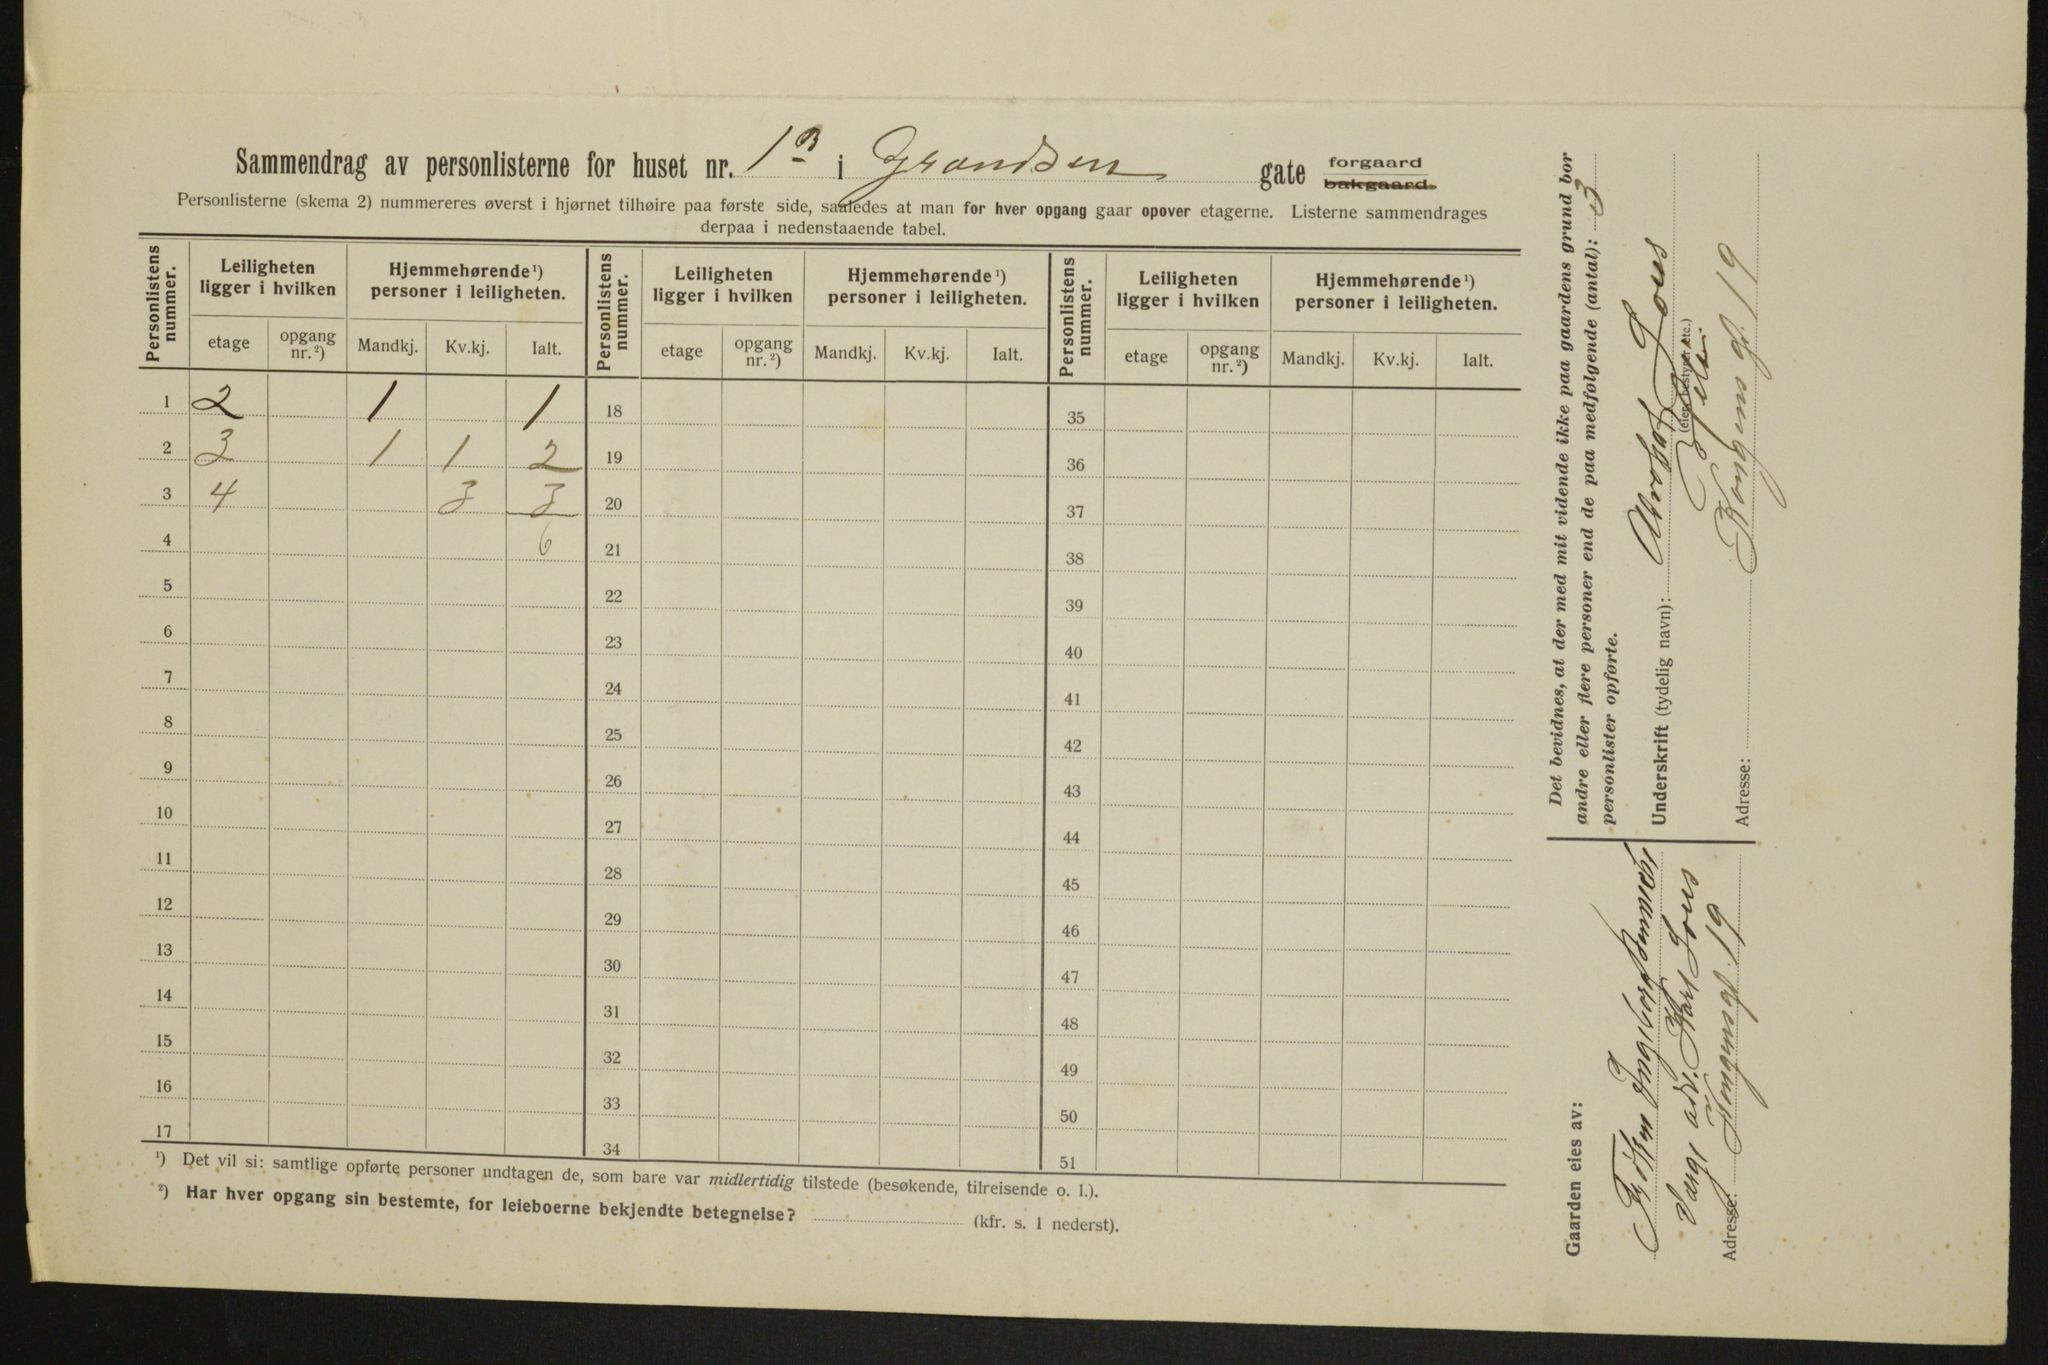 Sammendrag av personlisterne for huset nr. 1 B i Grændsen gate forgaard bakgaard.
Personlisterne (skema 2) nummereres øverst i hjørnet tilhøire paa første side, saaledes at man for hver opgang gaar opover etagerne. Listerne sammendrages
derpaa i nedenstaaende tabel.
Personlistens nummer. Leiligheten ligger i hvilken Hjemmehørende ¹) personer i leiligheten. Personlistens nummer. Leiligheten ligger i hvilken Hjemmehørende ¹) personer i leiligheten. Personlistens nummer. Leiligheten ligger i hvilken Hjemmehørende ¹) personer i leiligheten.
etage opgang nr. ²) Mandkj. Kv.kj. Ialt. etage opgang nr. ²) Mandkj. Kv.kj. Ialt. etage opgang nr. ²) Mandkj. Kv.kj. Ialt.
1 2 1 1 18 35
2 3 1 1 2 19 36
3 4 3 3 20 37
4 6 21 38
5 22 39
6 23 40
7 24 41
8 25 42
9 26 43
10 27 44
11 28 45
12 29 46
13 30 47
14 31 48
15 32 49
16 33 50
17 34 51
¹) Det vil si: samtlige opførte personer undtagen de, som bare var midlertidig tilstede (besøkende, tilreisende o. l.).
²) Har hver opgang sin bestemte, for leieboerne bekjendte betegnelse? (kfr. s. 1 nederst).
Det bevidnes, at der med mit vidende ikke paa gaardens grund bor
andre eller flere personer end de paa medfølgende (antal): 3
personlister opførte.
Underskrift (tydelig navn):
(eier, bestyrer etc.)
Adresse: Kongensg. 19
Gaarden eies av:
Frøken Ingeborg
Adresse: Kongensg. 19